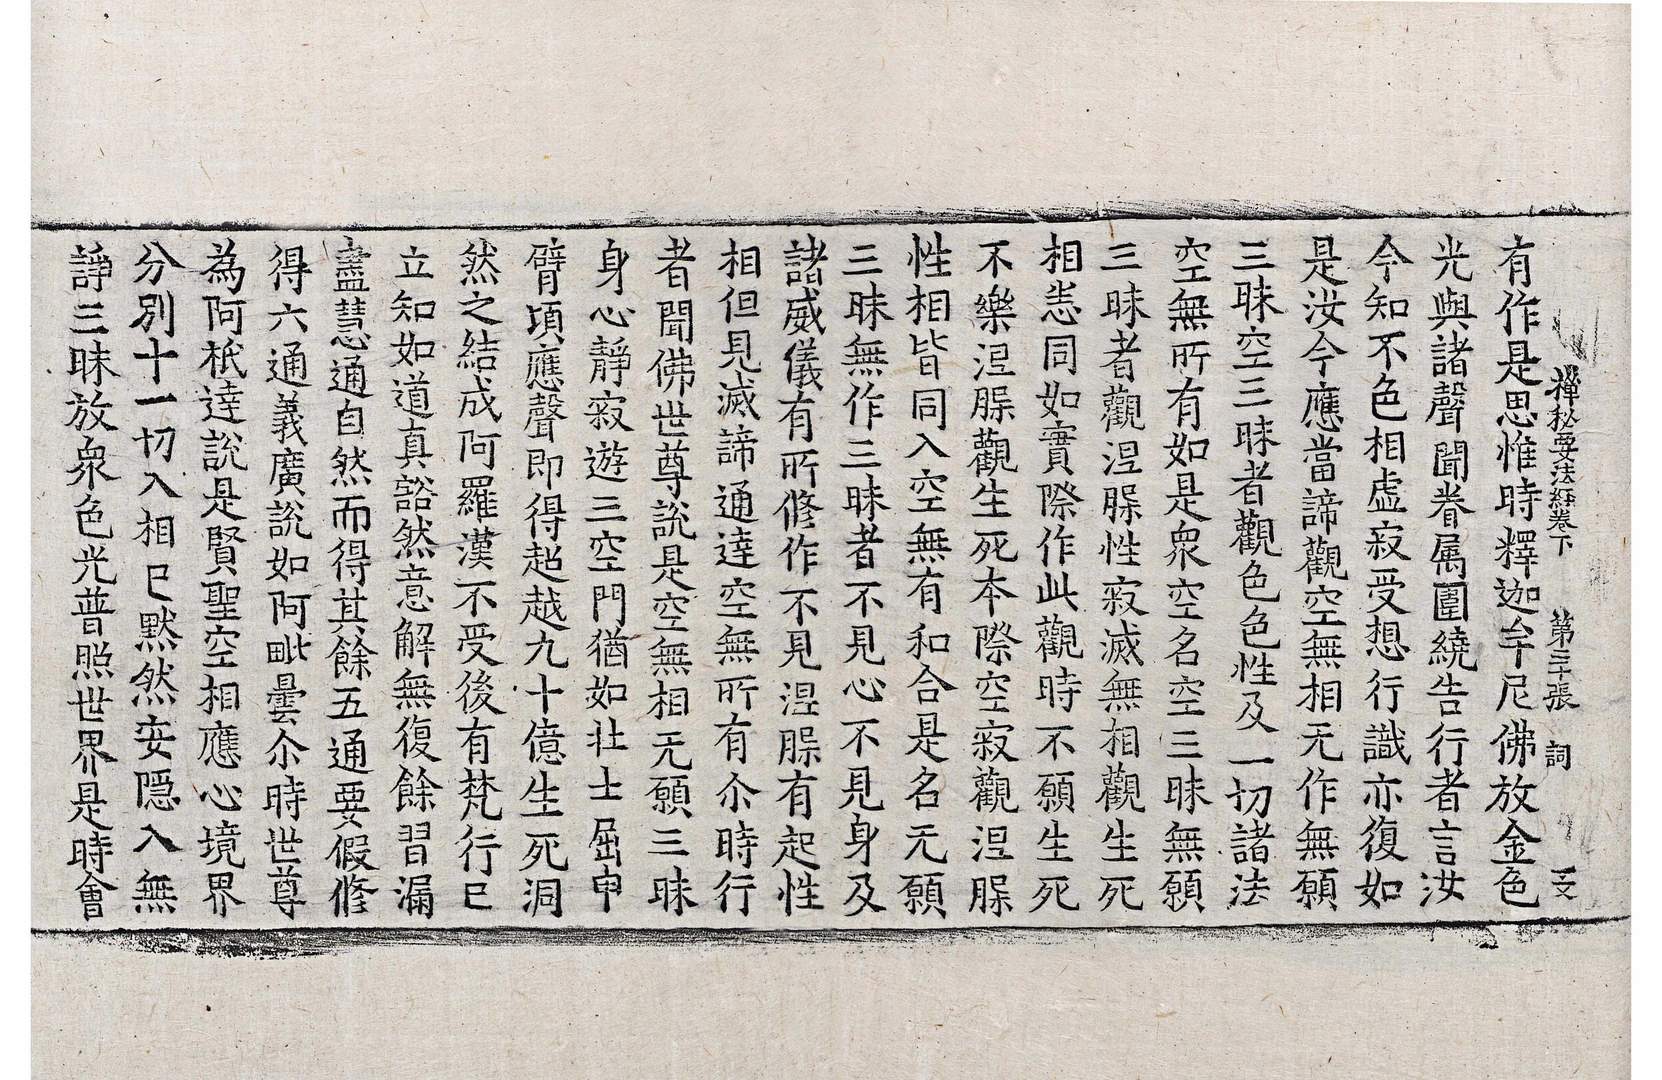 禪秘要法經卷下 第三十張 詞
有作是思惟時釋迦牟尼佛放金色
光與諸聲聞眷属圍繞告行者言汝
今知不色相虛寂受想行識亦復如
是汝今應當諦觀空無相无作無願
三昧空三昧者觀色色性及一切諸法
空無所有如是衆空名空三昧無願
三昧者觀涅槃性寂滅無相觀生死
相悉同如實際作此觀時不願生死
不樂涅槃觀生死本際空寂觀涅槃
性相皆同入空無有和合是名无願
三昧無作三昧者不見心不見身及
諸威儀有所修作不見涅槃有起性
相但見滅諦通達空無所有尒時行
者聞佛世尊說是空無相无願三昧
身心靜寂遊三空門猶如壯士屈申
臂頃應聲即得超越九十億生死洞
然之結成阿羅漢不受後有梵行已
立知如道真豁然意解無復餘習漏
盡慧通自然而得其餘五通要假修
得六通義廣說如阿毗曇尒時世尊
為阿祇達說是賢聖空相應心境界
分別十一切入相已默然安隱入無
諍三昧放衆色光普照世界是時會